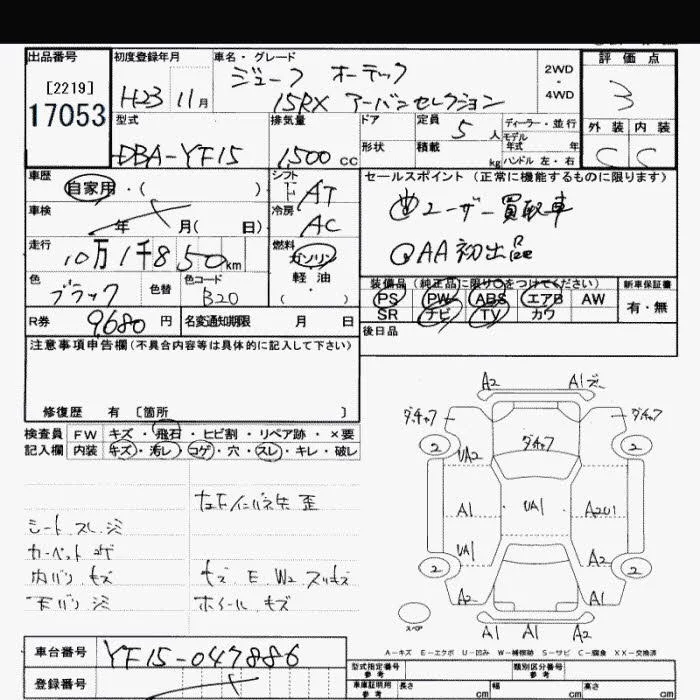 出品番号 初度登録年月 車名・グレード 評価点
[2219] ジューク オーテック 2WD ・ 4WD 3
17053 H23 11月 15RX アーバンセレクション
型式 排気量 ドア 定員 5人 ディーラー・並行 外装 内装
モデル年式 年
DBA-YF15 1,500 cc 形状 積載 kg ハンドル 左・右 C C
車歴 シフト セールスポイント (正常に機能するものに限ります)
自家用・( ) F AT
車検 年 月( 日) 冷房 AC ユーザー買取車
走行 燃料 AA初出品
10万1千850km ガソリン
色 色替 色コード 軽・油 装備品(純正品に限り○をつけてください) 新車保証書
ブラック B20 ・( ) PS PW ABS エアB AW 有・無
SR ナビ TV カワ
R券 9,680円 名変通知期限 月 日 後日品
注意事項申告欄(不具合内容等は具体的に記入して下さい)
修復歴 有 [箇所 ]
検査員 FW キズ・飛石・ヒビ割・リペア跡・×要
記入欄 内装 キズ・汚レ・コゲ・穴・スレ・キレ・破レ
A2 A1
ダチャク ダチャク
ダチャク
2 UA2 2
A1 UA1 A2U1
UA1 A2
2 2
A2 A1
スペア
A1 A1 A2
シート スレ シミ
カーペット コゲ
内バリ キズ キズ E W2 スリキズ
天バリ シミ ホイール キズ
A-キズ E-エクボ U-凹み W-補修跡 S-サビ C-腐食 XX-交換済
車台番号 YF15-047886 型式指定番号 参考 類別区分番号 参考
登録番号 車庫証明用 参考 長さ cm 幅 cm 高さ cm